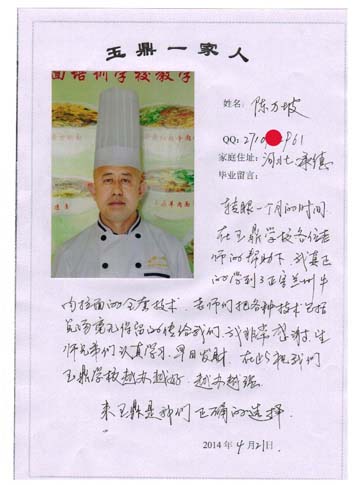 玉鼎一家人
面培训学校教学
姓名：陈万坡
QQ：2710 961
家庭住址：河北 承德
毕业留言：
转眼一个月的时间
在玉鼎学校各位老
师的帮助下，我真正
的学到了正宗兰州牛
肉拉面的全套技术。老师们把各种技术包括
毫不保留的传给我们，我非常感谢。
师兄弟们认真学习，早日发财。在此祝我们
玉鼎学校越办越好，越办越强。
来玉鼎是我们正确的选择。
2014年4月21日.